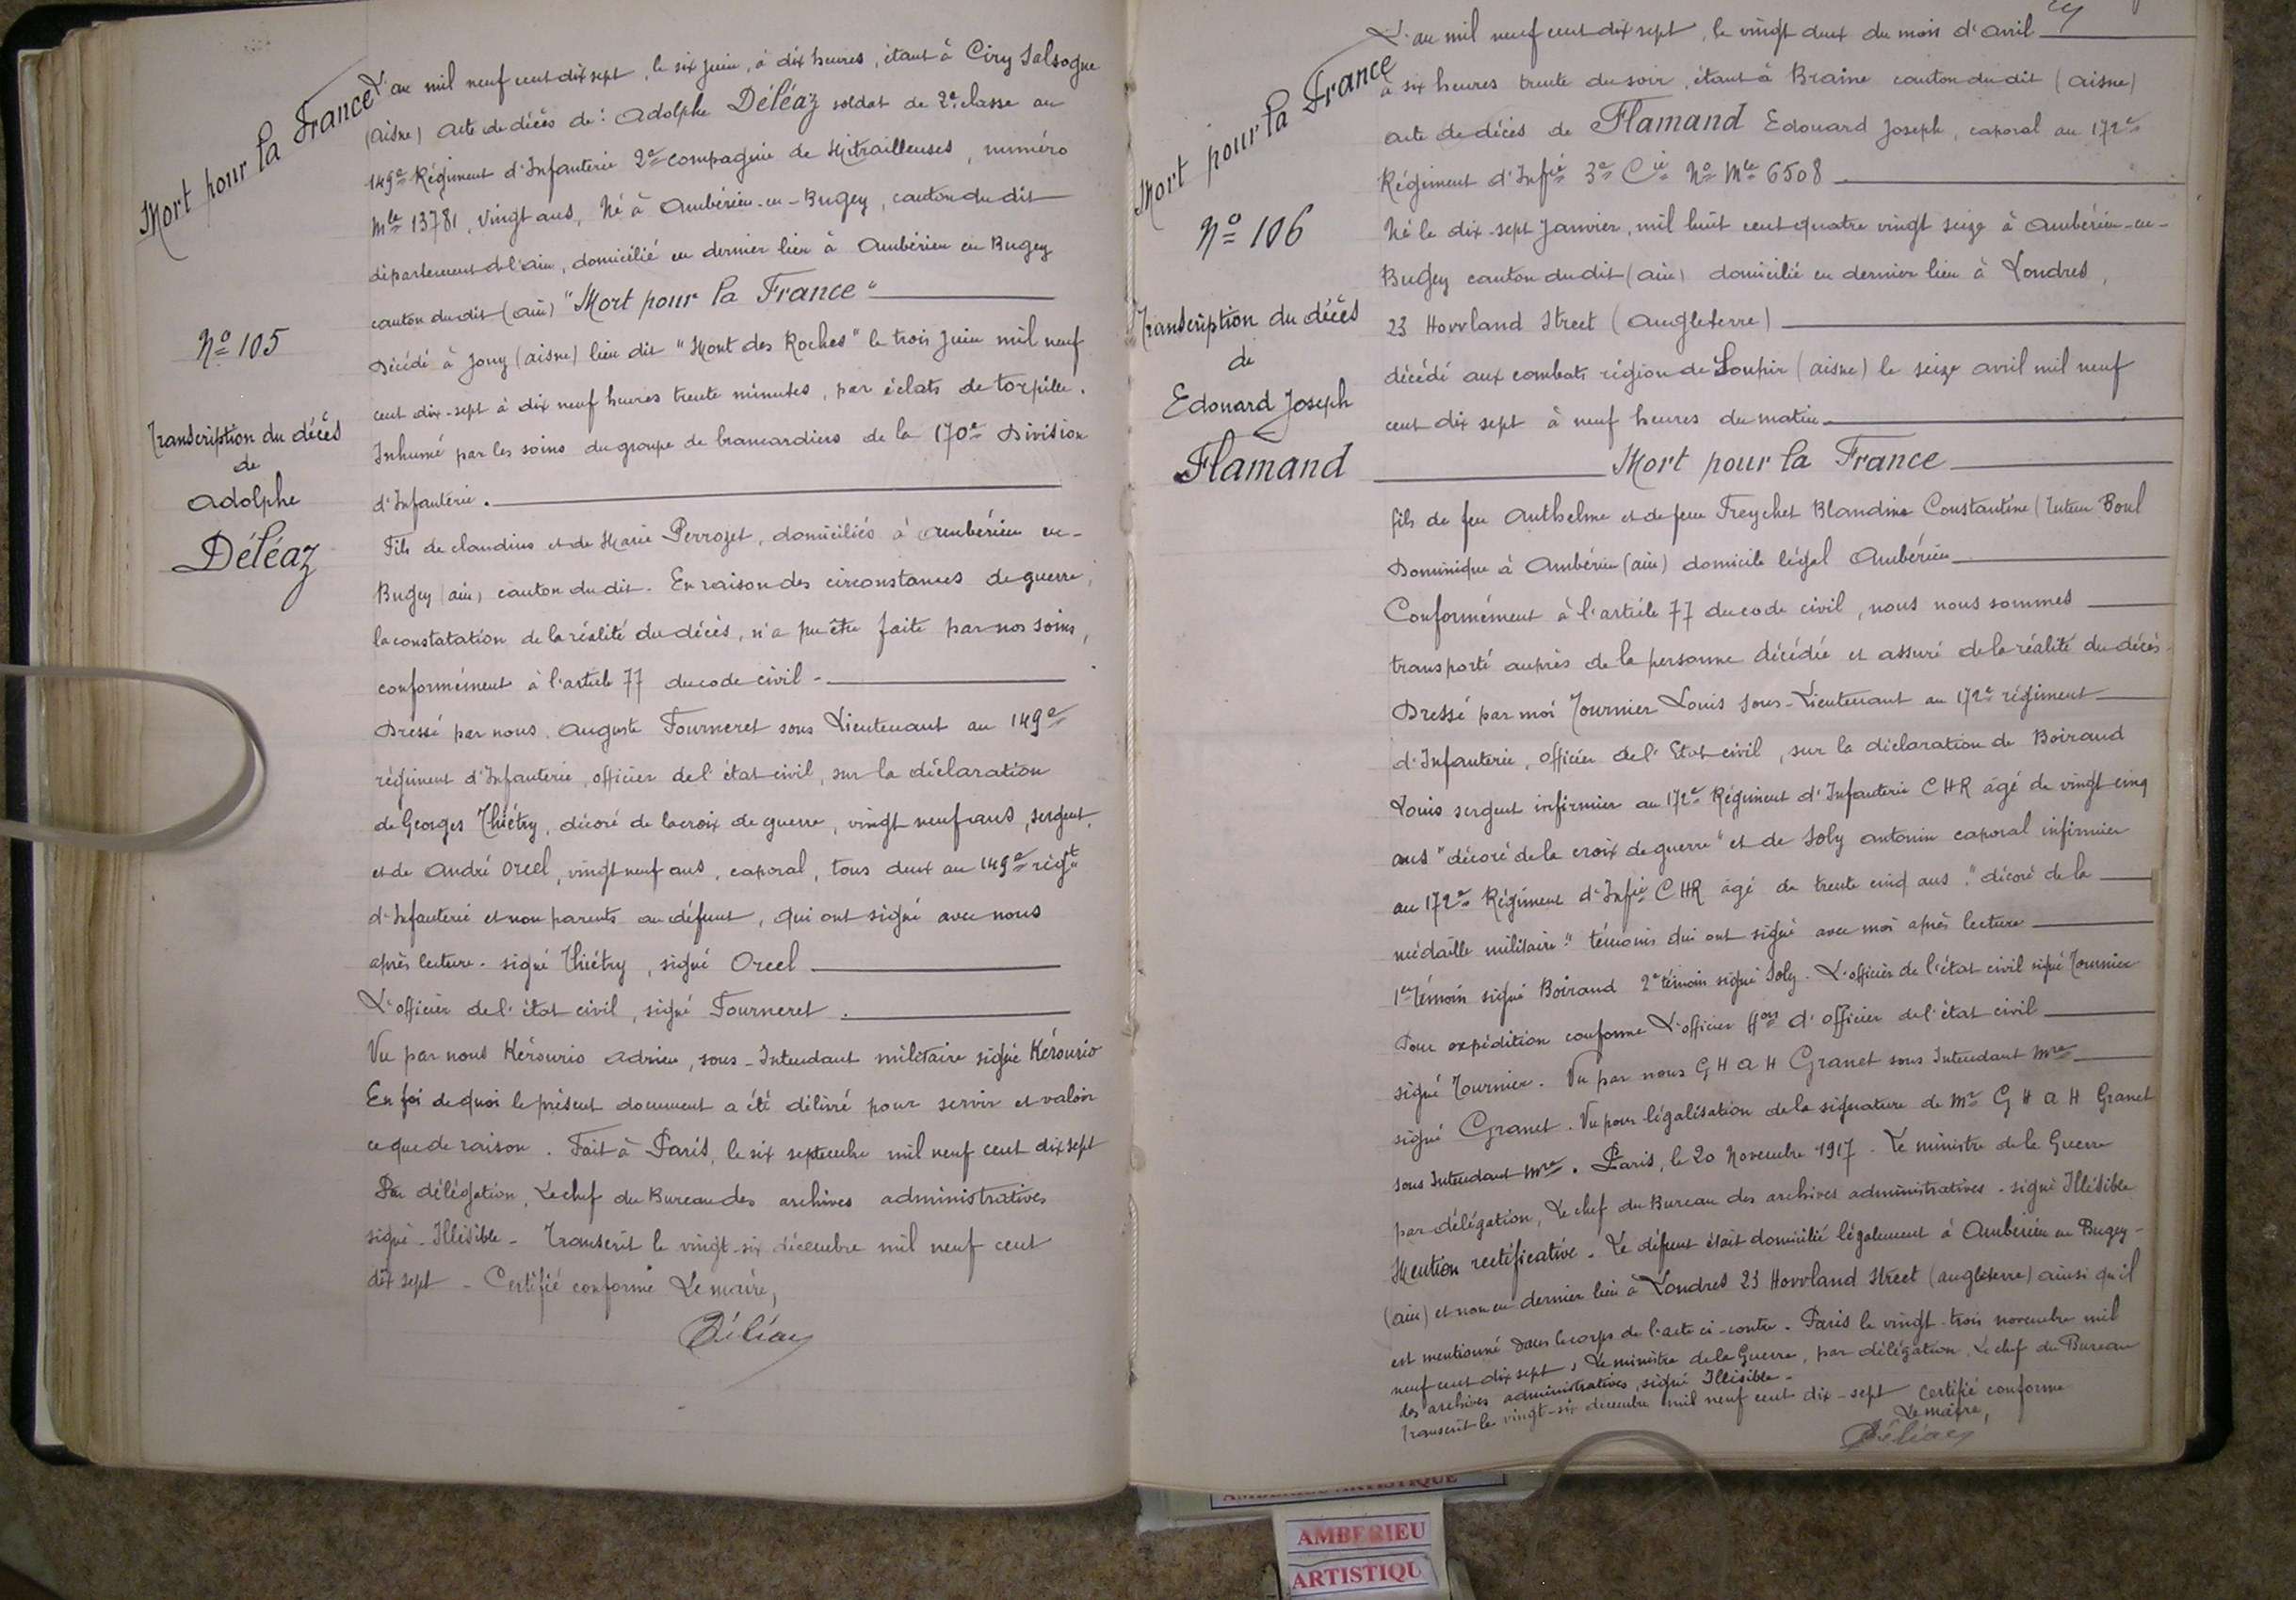 Mort pour la France
L'an mil neuf cent dix sept, le six juin, à dix heures, étant à Ciry Salsogne
(aisne) acte de décès de : Adolphe Déléaz soldat de 2e classe au
149e Régiment d'Infanterie 2e compagnie de Mitrailleuses, numéro
Mle 13781, vingt ans, Né à Ambérieu-en-Bugey, canton du dit
département de l'ain, domicilié en dernier lieu à Ambérieu en Bugey
canton du dit (ain) "Mort pour la France"
Décédé à Jouy (aisne) lieu dit "Mont des Roches" le trois juin mil neuf
cent dix-sept à dix neuf heures trente minutes, par éclats de torpille.
Inhumé par les soins du groupe de brancardiers de la 170e Division
d'Infanterie.
Fils de claudius et de Marie Perrozet, domiciliés à Ambérieu en-
Bugey (ain) canton du dit. En raison des circonstances de guerre,
la constatation de la réalité du décès, n'a pu être faite par nos soins,
conformément à l'article 77 du code civil -
Dressé par nous, Auguste Fourneret sous Lieutenant au 149e
régiment d'Infanterie, officier de l'état civil, sur la déclaration
de Georges Thiétry, décoré de la croix de guerre, vingt neuf ans, sergent,
et de André Orcel, vingt neuf ans, caporal, tous deux au 149e régt
d'Infanterie et non parents au défunt, qui ont signé avec nous
après lecture. signé Thiétry, signé Orcel
L'officier de l'état civil, signé Fourneret.
Vu par nous Kérourio Adrien, sous-Intendant militaire signé Kérourio
En foi de quoi le présent document a été délivré pour servir et valoir
ce que de raison. Fait à Paris, le six septembre mil neuf cent dix sept
Par délégation, Le chef du Bureau des archives administratives
signé - Illisible - Transcrit le vingt-six décembre mil neuf cent
dix sept - Certifié conforme Le maire,
No 105
Transcription du décès
de
Adolphe
Déléaz
Mort pour la France
No 106
Transcription du décès
de
Edouard Joseph
Flamand
L'an mil neuf cent dix sept, le vingt deux du mois d'avril
à six heures trente du soir, étant à Braine canton du dit (aisne)
acte de décès de Flamand Edouard Joseph, caporal au 172e
Régiment d'Infie 3e Cie No Mle 6508
Né le dix-sept Janvier, mil huit cent quatre vingt seize à Ambérieu-en-
Bugey canton du dit (ain) domicilié en dernier lieu à Londres,
23 Hovvland Street (Angleterre)
décédé aux combats région de Soupir (aisne) le seize avril mil neuf
cent dix sept à neuf heures du matin
Mort pour la France
fils de feu Anthelme et de feue Freychet Blandine Constantine (Tuteur Boul
Dominique à Ambérieu (ain) domicile légal Ambérieu
Conformément à l'article 77 du code civil, nous nous sommes
transporté auprès de la personne décédée et assuré de la réalité du décès.
Dressé par moi Tournier Louis Sous-Lieutenant au 172e régiment
d'Infanterie, officier de l'Etat civil, sur la déclaration de Boiraud
Louis sergent infirmier au 172e Régiment d'Infanterie CHR âgé de vingt cinq
ans "décoré de la croix de guerre" et de Joly antonin caporal infirmier
au 172e Régiment d'Infie CHR âgé de trente cinq ans, "décoré de la
médaille militaire" témoins qui ont signé avec moi après lecture
1er témoin signé Boiraud 2e témoin signé Joly. L'officier de l'état civil signé Tournier
Pour expédition conforme L'officier ffons d'officier de l'état civil
signé Tournier. Vu par nous G H A H Granet sous Intendant Mre
signé Granet. Vu pour légalisation de la signature de Mr G H A H Granet
sous Intendant Mre. Paris, le 20 Novembre 1917. Le ministre de la Guerre
par délégation, Le chef du Bureau des archives administratives - signé Illisible
Mention rectificative. Le défunt était domicilié légalement à Ambérieu en Bugey -
(ain) et non en dernier lieu à Londres 23 Hovvland Street (angleterre) ainsi qu'il
est mentionné dans le corps de l'acte ci-contre. Paris le vingt-trois novembre mil
neuf cent dix sept, Le ministre de la Guerre, par délégation, Le chef du Bureau
des archives administratives, signé Illisible -
Transcrit le vingt-six décembre mil neuf cent dix-sept Certifié conforme
Le maire,
AMBERIEU ARTISTIQUE
AMBERIEU
ARTISTIQU